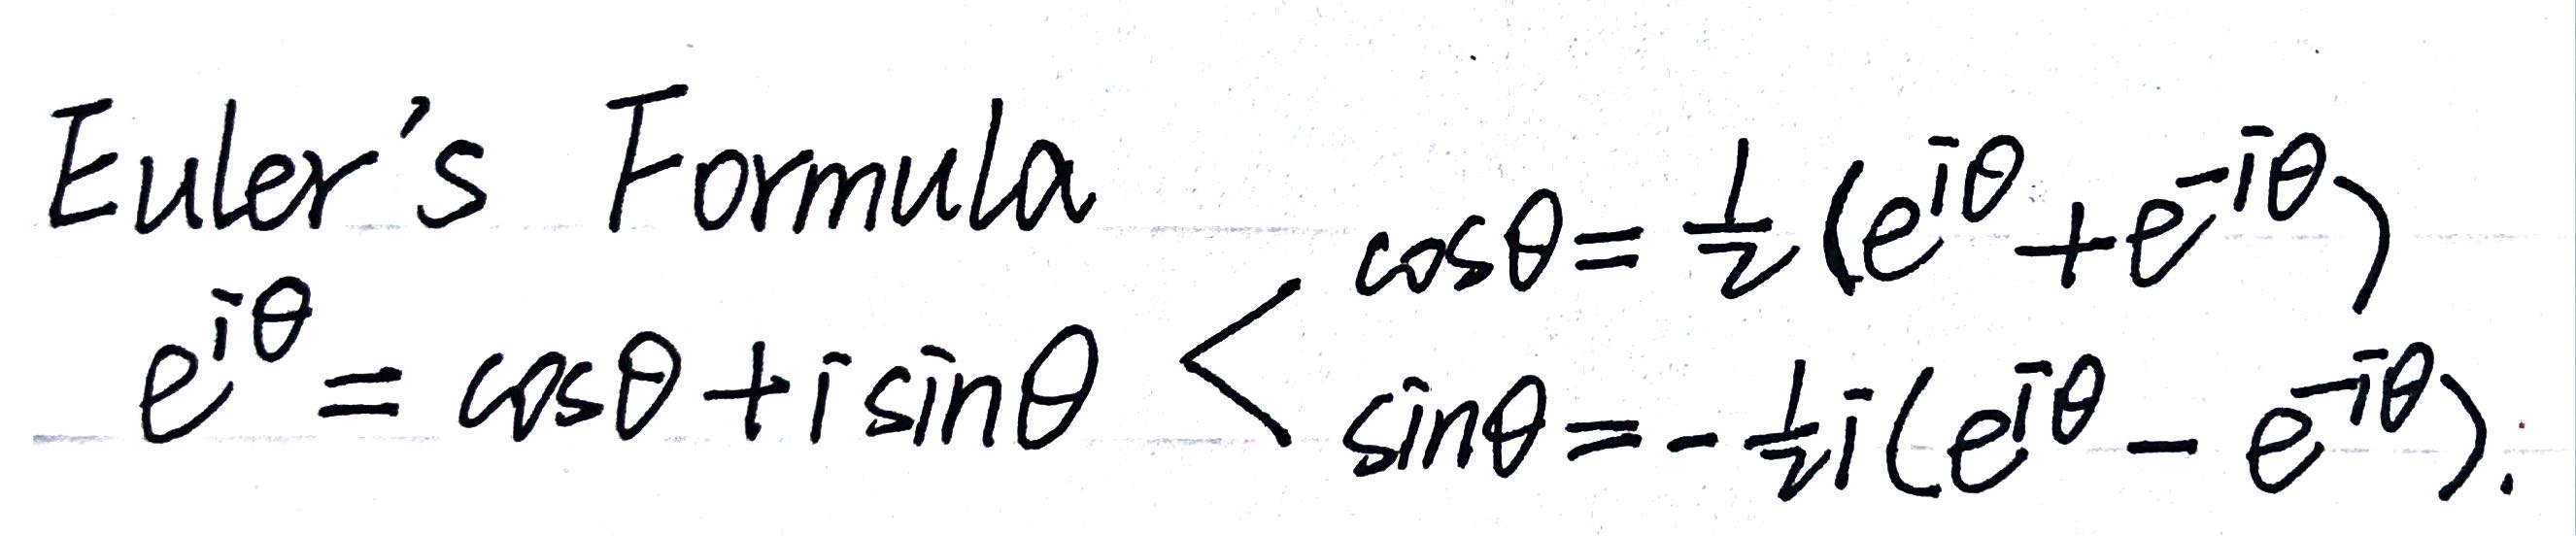 Euler's Formula
e^{iθ} = cosθ + i sinθ <
cosθ = \frac{1}{2} (e^{iθ} + e^{-iθ})
sinθ = -\frac{1}{2} i (e^{iθ} - e^{-iθ}).